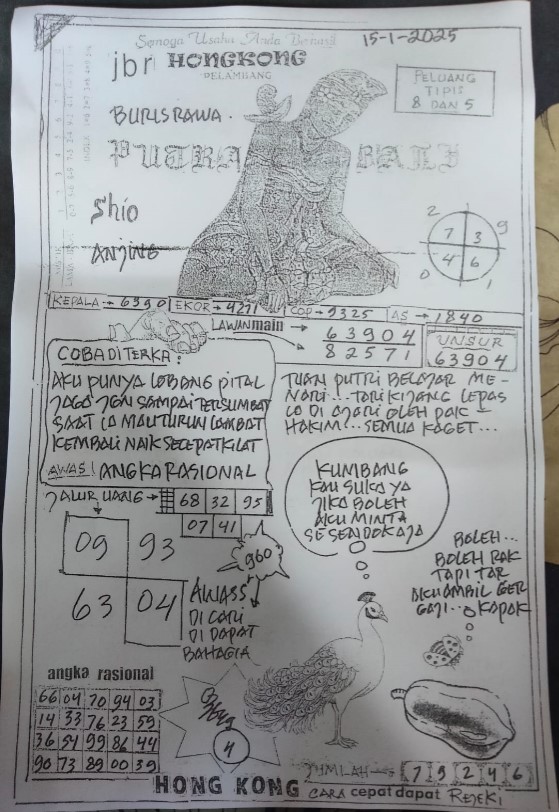 Semoga Usaha Anda Berhasil
15-1-2025
jbr HONGKONG
PELAMBANG
PELUANG
TIPIS
8 DAN 5
BURISRAWA.
PUTRA BALI
Shio
ANJING
2 9
7 3
4 6
0 1
KEPALA → 6390 EKOR → 4271 COP → 9325 AS → 1840
LAWAN main → 63904
82571
UNSUR
63904
COBA DITERKA:
AKU PUNYA LOBANG PITAL
JAGO JGN SAMPAI TERSUMBAT
SAAT IA MAU TURUN LAMBAT
KEMBALI NAIK SECEPAT KILAT
AWAS! ANGKA RASIONAL
TUAN PUTRI BELAJAR ME-
NARI... TARI KIJANG LEPAS
LO DI AJARI OLEH PAK
HAKIM... SEMUA KAGET...
JALUR UANG → 68 32 95
07 41
KUMBANG
KAU SUKA YA
JIKA BOLEH
AKU MINTA
SESENDOK AJA
09 93
960
63 04
AWASS
DI CARI
DI DAPAT
BAHAGIA
BOLEH...
BOLEH PAK
TAPI TAR
AKU AMBIL GER
GAJI.. & KAPAK
angka rasional
66 04 70 94 03
14 33 76 23 59
36 54 99 86 44
90 73 89 00 39
4
JUMLAH → 7 9 2 4 6
HONG KONG CARA cepat dapat REJEKI